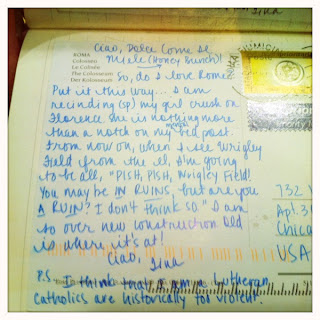 Gina
Ciao, Dolce Come Se
Miele (Honey Bunch)!
ROMA
Colosseo
Le Colisée
The Colosseum
Der Kolosseum
So, do I love Rome?
Put it this way... I am
recinding (sp) my girl crush on
Florence She is nothing more
than a notch on my bed post.
From now on, when I see Wrigley
Field from the el, I'm going
to be all, "PISH, PISH, Wrigley Field!
You may be IN RUINS, but are you
A RUIN? I don't think so." I am
so over new construction. Old
is where it's at!
Ciao,
Gina
P.S. I think that I am a Lutheran.
Catholics are historically too violent.
FIUMICINO
732
Apt. 3
Chica
USA